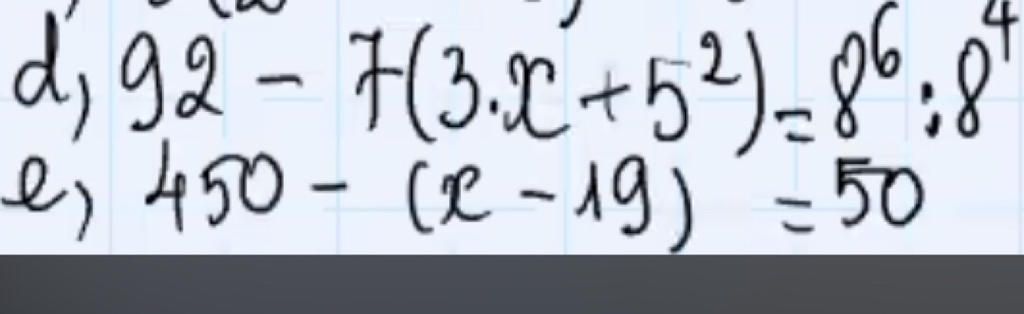 d, 92 - 7(3.x + 5²) = 8⁶ : 8⁴
e, 450 - (x - 19) = 50